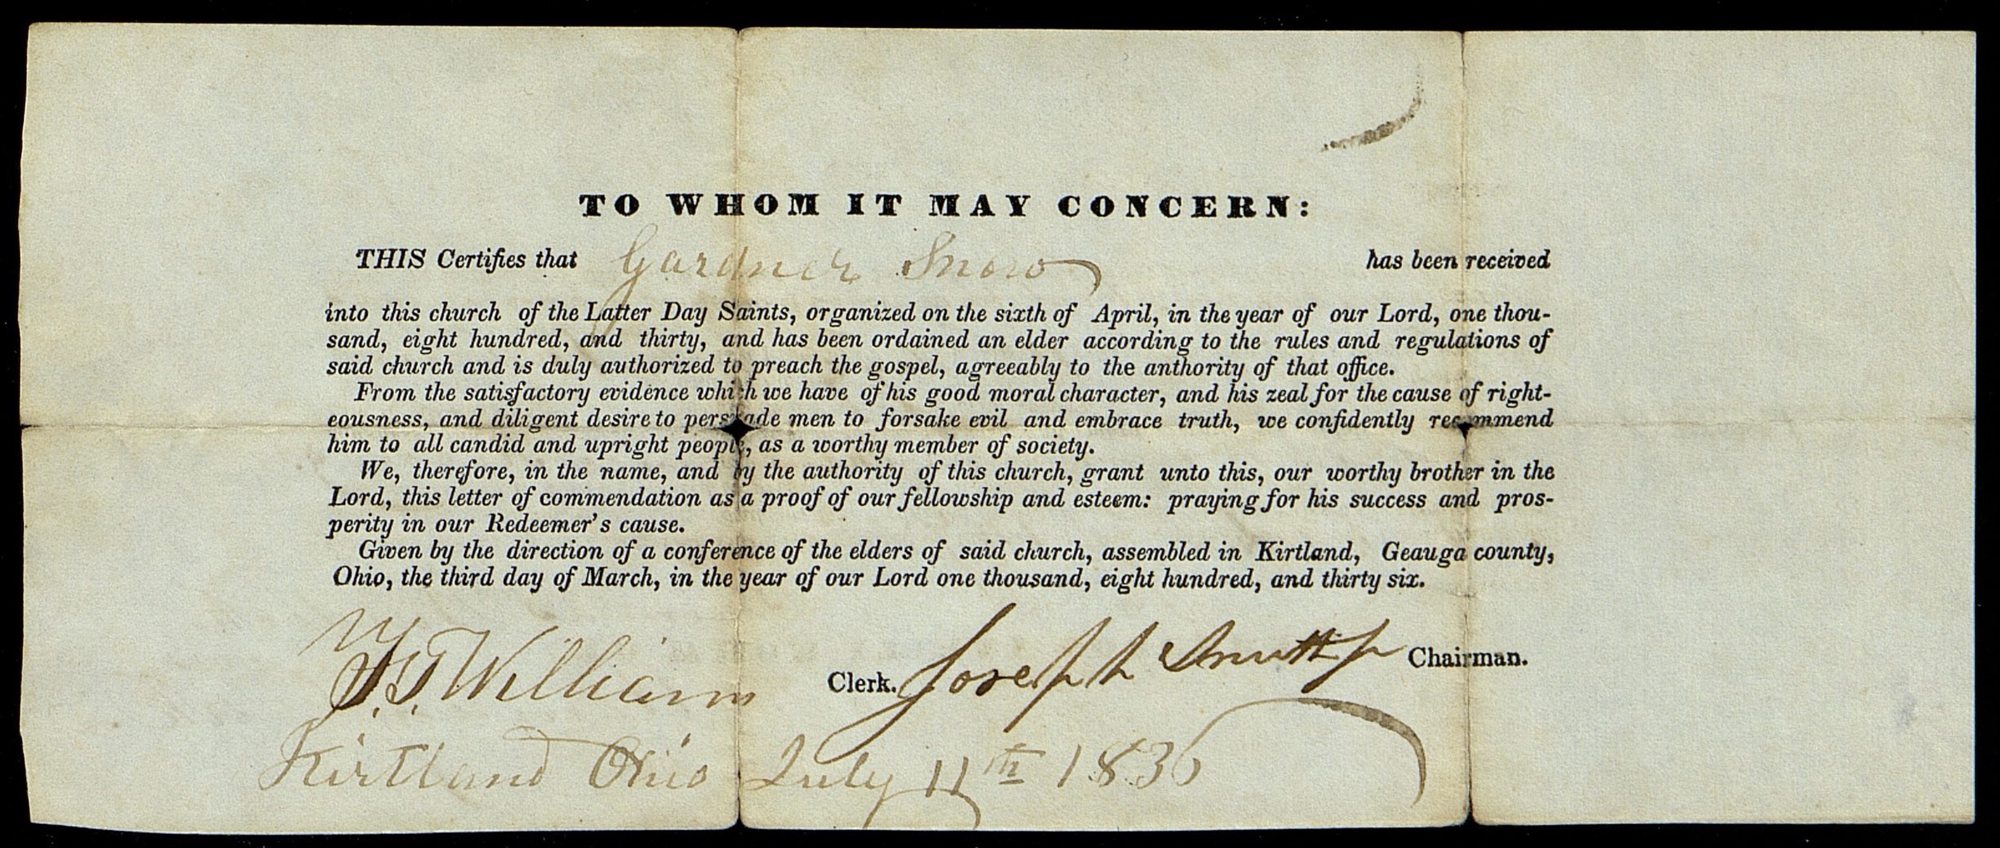 TO WHOM IT MAY CONCERN:
THIS Certifies that Gardner Snow has been received
into this church of the Latter Day Saints, organized on the sixth of April, in the year of our Lord, one thou-
sand, eight hundred, and thirty, and has been ordained an elder according to the rules and regulations of
said church and is duly authorized to preach the gospel, agreeably to the anthority of that office.
From the satisfactory evidence which we have of his good moral character, and his zeal for the cause of right-
eousness, and diligent desire to persuade men to forsake evil and embrace truth, we confidently recommend
him to all candid and upright people, as a worthy member of society.
We, therefore, in the name, and by the authority of this church, grant unto this, our worthy brother in the
Lord, this letter of commendation as a proof of our fellowship and esteem: praying for his success and pros-
perity in our Redeemer's cause.
Given by the direction of a conference of the elders of said church, assembled in Kirtland, Geauga county,
Ohio, the third day of March, in the year of our Lord one thousand, eight hundred, and thirty six.
F. G. Williams Clerk. Joseph Smith Jr Chairman.
Kirtland Ohio July 11th 1836